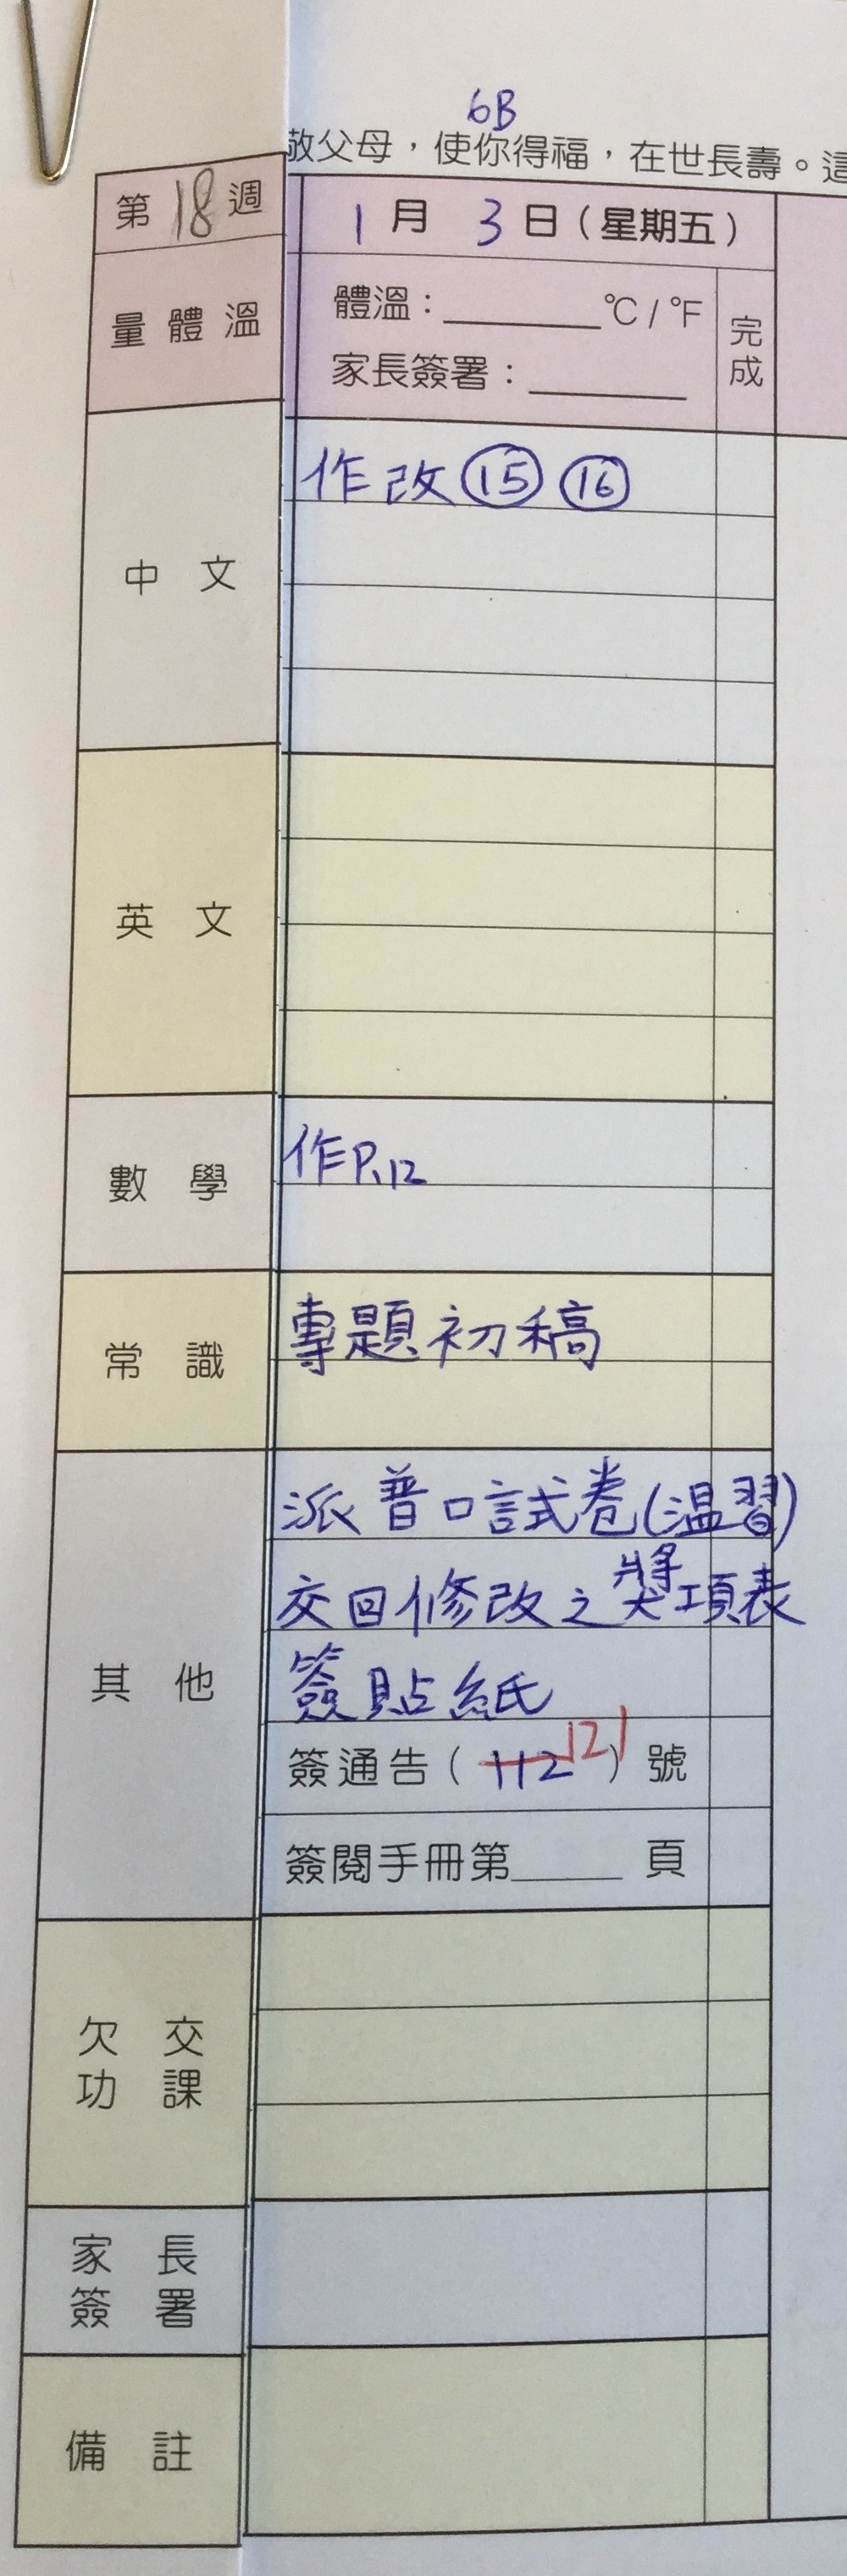 6B
敬父母，使你得福，在世長壽。這
第18週
1月3日（星期五）
量體溫
體溫：______℃/℉
家長簽署：______
完成
中文
作改⑮⑯
英文
數學
作P.12
常識
專題初稿
其他
派普口試卷(温習)
交回修改之獎項表
簽貼紙
簽通告（112 121）號
簽閱手冊第____頁
欠交
功課
家長
簽署
備註